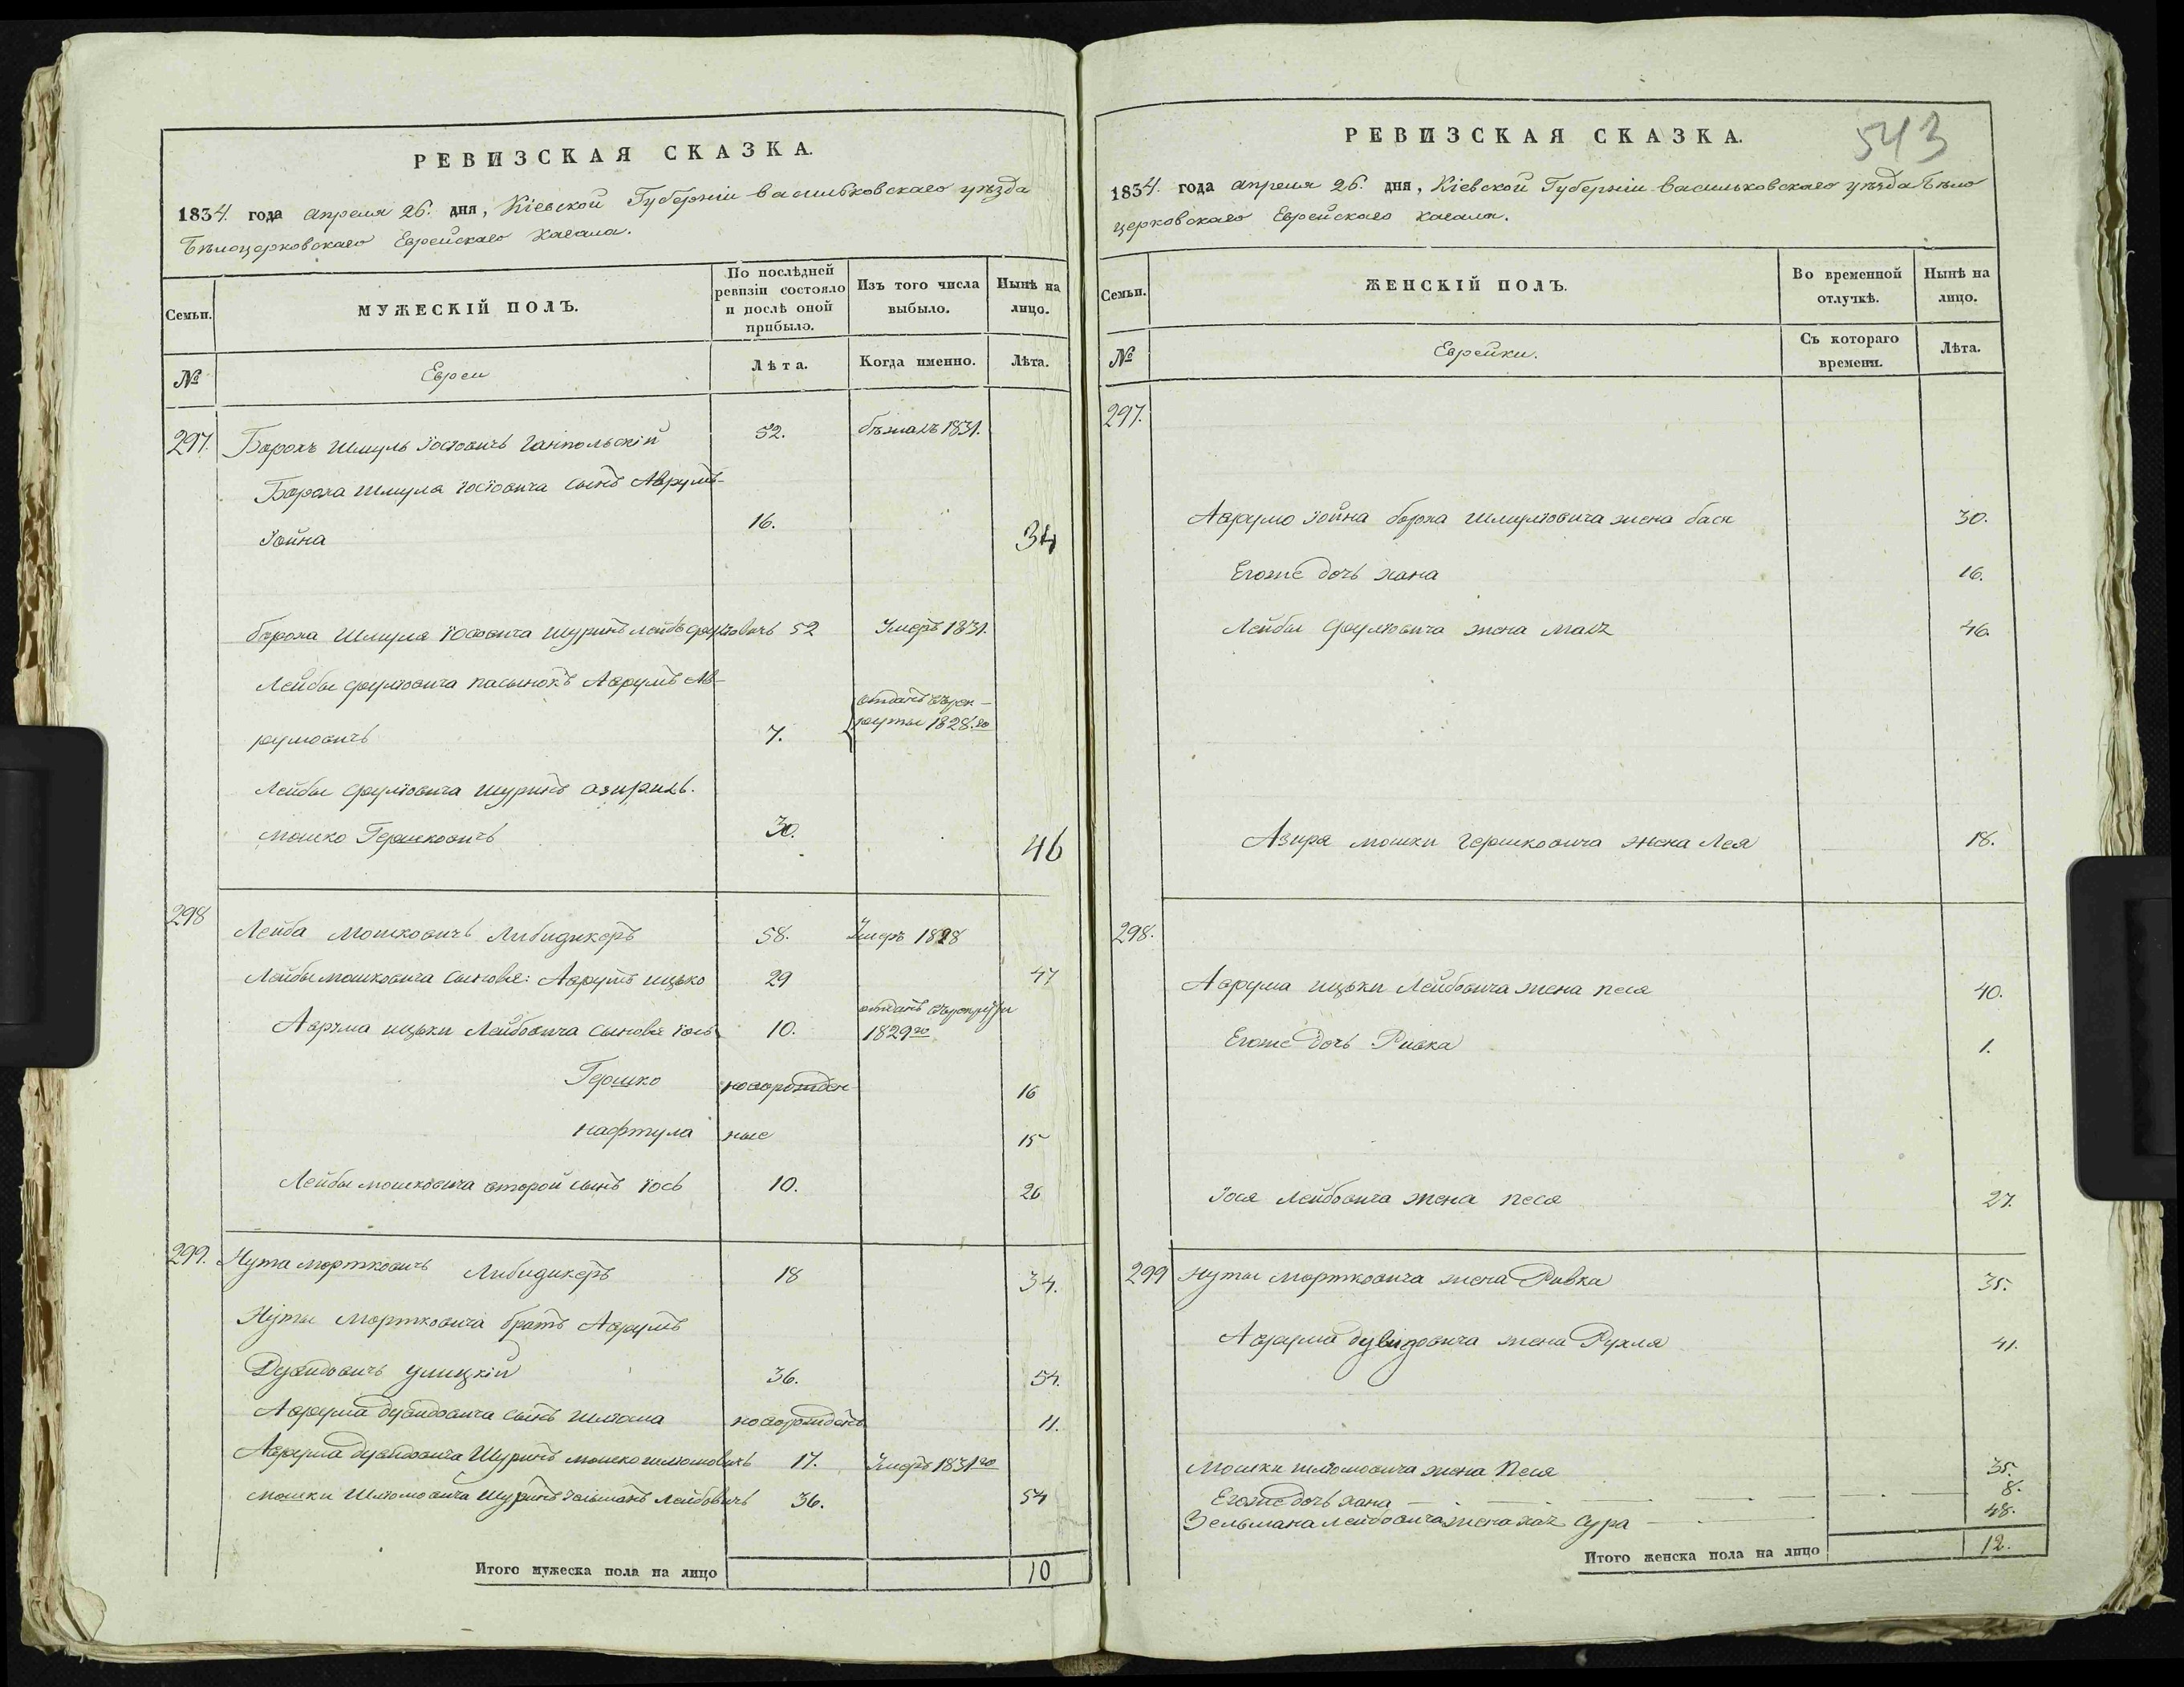 РЕВИЗСКАЯ СКАЗКА.
1834. года апреля 26. дня, Кіевской Губерніи васильковскаго уѣзда
Бѣлоцерковскаго Еврейскаго Кагала.
Семьи.
МУЖЕСКІЙ ПОЛЪ.
По послѣдней ревизіи состояло и послѣ оной прибыло.
Изъ того числа выбыло.
Нынѣ на лицо.
№
Евреи
Лѣта.
Когда именно.
Лѣта.
297. Борохъ Шмуль Іосіовичъ 52. бѣжалъ 1831.
Бороха Шмуля Іосіовича сынъ Аврумъ-
Іойна 16. 34
бороха Шмуля Іосіовича Шуринъ Лейбъ 52 Умеръ 1831.
Лейбы пасынокъ Аврумъ Ав-
румовичъ 7. отданъ въ рек-
руты 1828.го
Лейбы шуринъ азирилъ.
мошко Гершковичъ 30. 46
298 Лейба Мошковичъ Либидикеръ 58. Умеръ 1828
Лейбы мошковича сыновья: Аврумъ ицько 29 47
Аврума ицьки Лейбовича сыновья Іось 10. отданъ въ рекруты
1829го
Гершко новорожден 16
нафтула ные 15
Лейбы мошковича второй сынъ Іось 10. 26
299. Нута мортковичъ Либидикеръ 18 34.
Нуты Мортковича братъ Аврумъ
Дувидовичъ улицкій 36. 54.
Аврума дувидовича сынъ шліома новорожденъ 11.
Аврума дувидовича Шуринъ мошко шліомовичъ 17. Умеръ 1831го
мошки Шліомовича Шуринъ Зельманъ Лейбовичъ 36. 54
Итого мужеска пола на лицо 10
РЕВИЗСКАЯ СКАЗКА. 543
1834. года апреля 26. дня, Кіевской Губерніи васильковскаго уѣзда Бѣло
церковскаго Еврейскаго кагала.
Семьи.
ЖЕНСКІЙ ПОЛЪ.
Во временной отлучкѣ.
Нынѣ на лицо.
№
Еврейки.
Съ котораго времени.
Лѣта.
297.
Аврумо Іойна бороха Шмуліовича жена бася 30.
Егоже дочь хана 16.
Лейбы жена 46.
Азира мошки гершковича жена Лея 18.
298.
Аврума ицьки Лейбовича жена песя 40.
Егоже дочь Ривка 1.
Іося Лейбовича жена песя 27.
299 Нуты мортковича жена Ривка 35.
Аврума дувидовича жена Рухля 41.
мошки шліомовича жена Песя 35.
Егоже дочь хана 8.
Зельмана лейбовича жена Сура 48.
Итого женска пола на лицо 12.